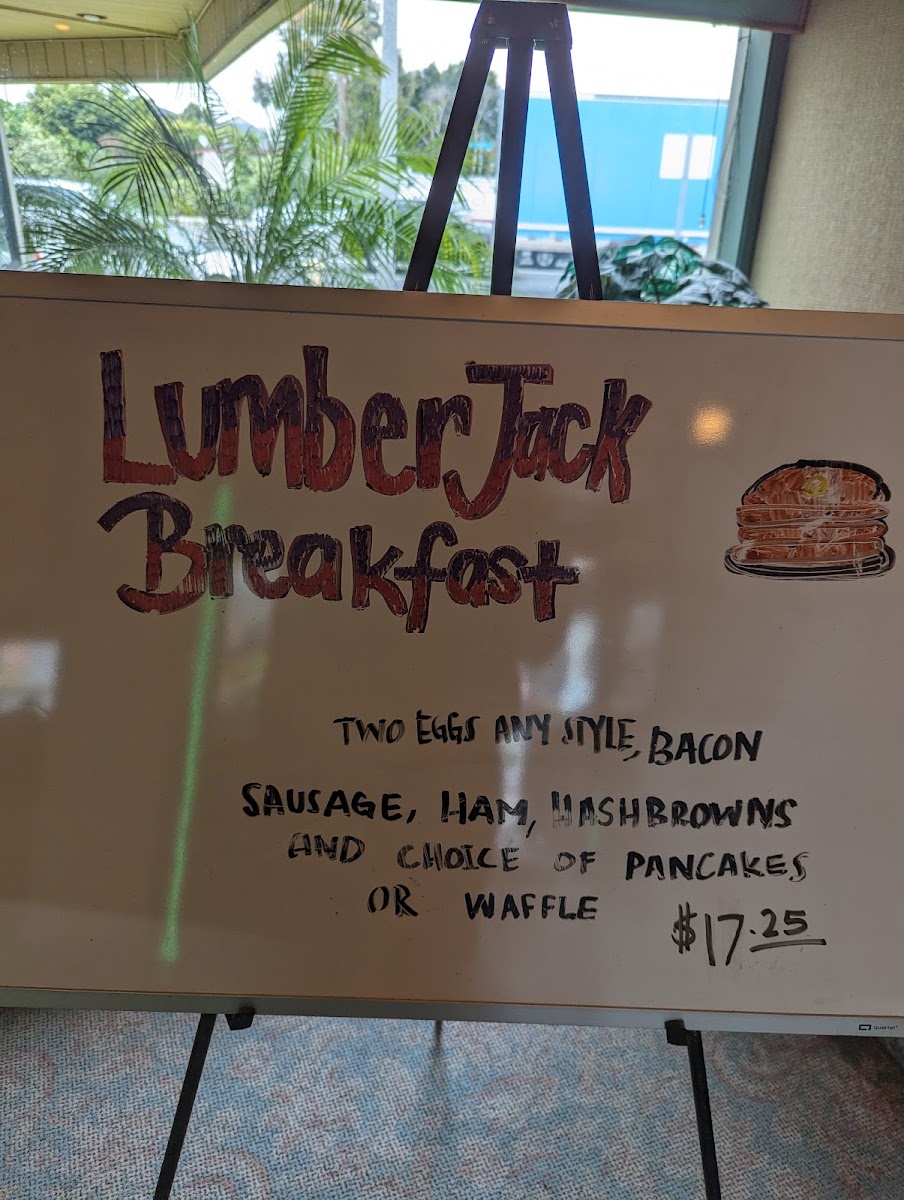 LumberJack
Breakfast
TWO EGGS ANY STYLE, BACON
SAUSAGE, HAM, HASHBROWNS
AND CHOICE OF PANCAKES
OR WAFFLE
$17.25
Quartet